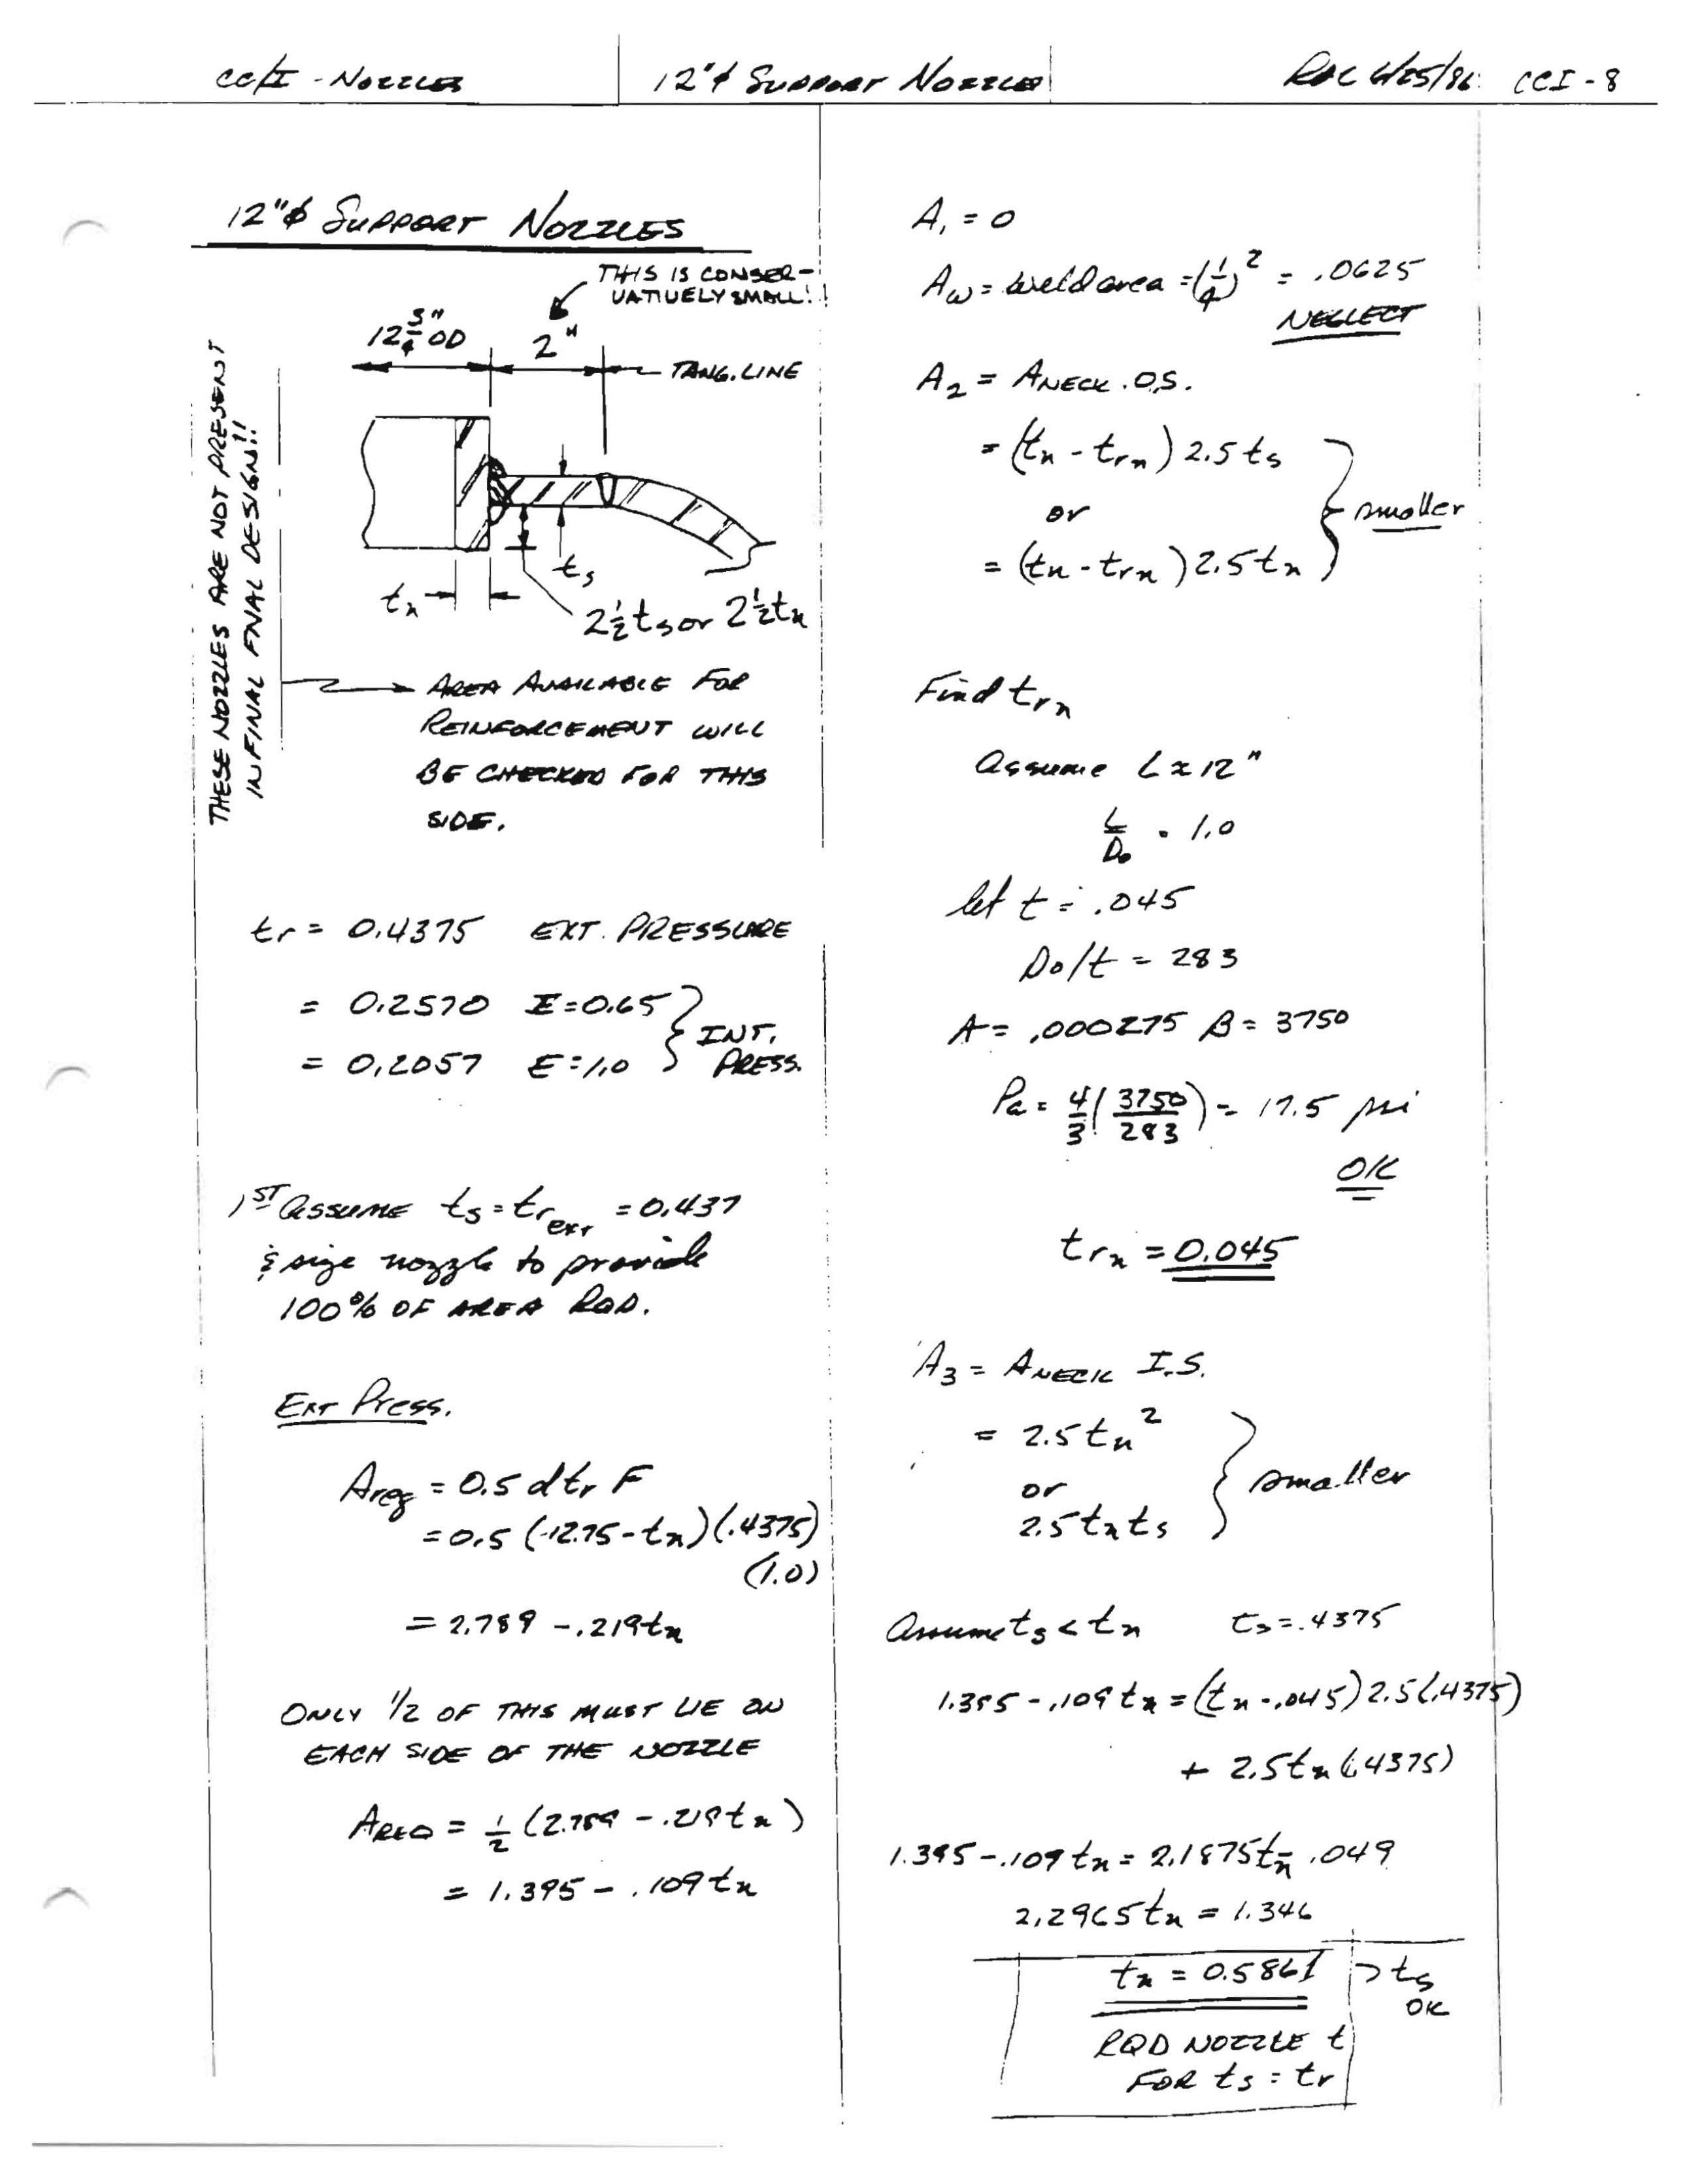 CC/I - NOZZLES
12"ϕ SUPPORT NOZZLES
RDC 6/25/86 CCI-8
12"ϕ SUPPORT NOZZLES
THIS IS CONSER-
VATIVELY SMALL!!
12 3/4" OD
2"
TANG. LINE
ts
tn
2 1/2 ts or 2 1/2 tn
THESE NOZZLES ARE NOT PRESENT
IN FINAL FNAL DESIGN!!
AREA AVAILABLE FOR
REINFORCEMENT WILL
BE CHECKED FOR THIS
SIDE.
tr = 0.4375 EXT. PRESSURE
= 0.2570 E=0.65
= 0.2057 E=1.0
INT.
PRESS.
1ST ASSUME ts = tr ext = 0.437
& size nozzle to provide
100% OF AREA RQD.
EXT Press.
Areq = 0.5 dtr F
= 0.5 (12.75 - tn)(.4375)
(1.0)
= 2.789 - .219tn
ONLY 1/2 OF THIS MUST LIE ON
EACH SIDE OF THE NOZZLE
AREQ = 1/2 (2.789 - .219tn)
= 1.395 - .109tn
A1 = 0
Aw = Weld area = (1/4)^2 = .0625
NEGLECT
A2 = ANECK O.S.
= (tn - trn) 2.5 ts
or
= (tn - trn) 2.5 tn
smaller
Find trn
Assume L ≈ 12"
L/Do = 1.0
let t = .045
Do/t = 283
A = .000275 B = 3750
Pa = 4/3 (3750/283) = 17.5 psi
OK
trn = 0.045
A3 = ANECK I.S.
= 2.5 tn^2
or
2.5 tn ts
smaller
Assume ts < tn ts = .4375
1.395 - .109 tn = (tn - .045) 2.5 (.4375)
+ 2.5 tn (.4375)
1.395 - .109 tn = 2.1875 tn - .049
2.2965 tn = 1.346
tn = 0.5861 > ts
OK
RQD NOZZLE t
FOR ts = tr